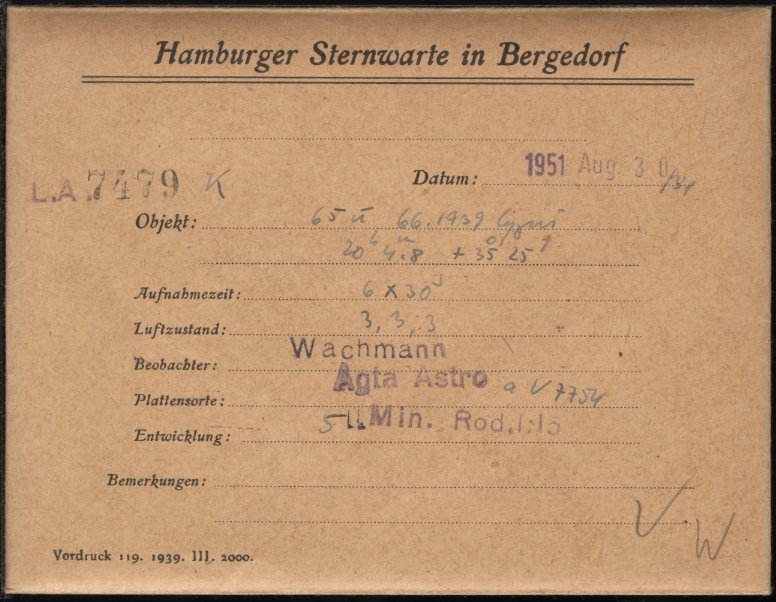 Hamburger Sternwarte in Bergedorf
L.A. 7479 K
Datum: 1951 Aug. 30/31
Objekt: 65 u 66.1939 Cygni
20ʰ 4ᵐ.8 + 35° 25'
Aufnahmezeit: 6 x 30ˢ
Luftzustand: 3, 3, 3
Beobachter: Wachmann
Plattensorte: Agfa Astro a V 7754
Entwicklung: 5 Min. Rod. 1:15
Bemerkungen:
V W
Vordruck 119. 1939. III. 2000.